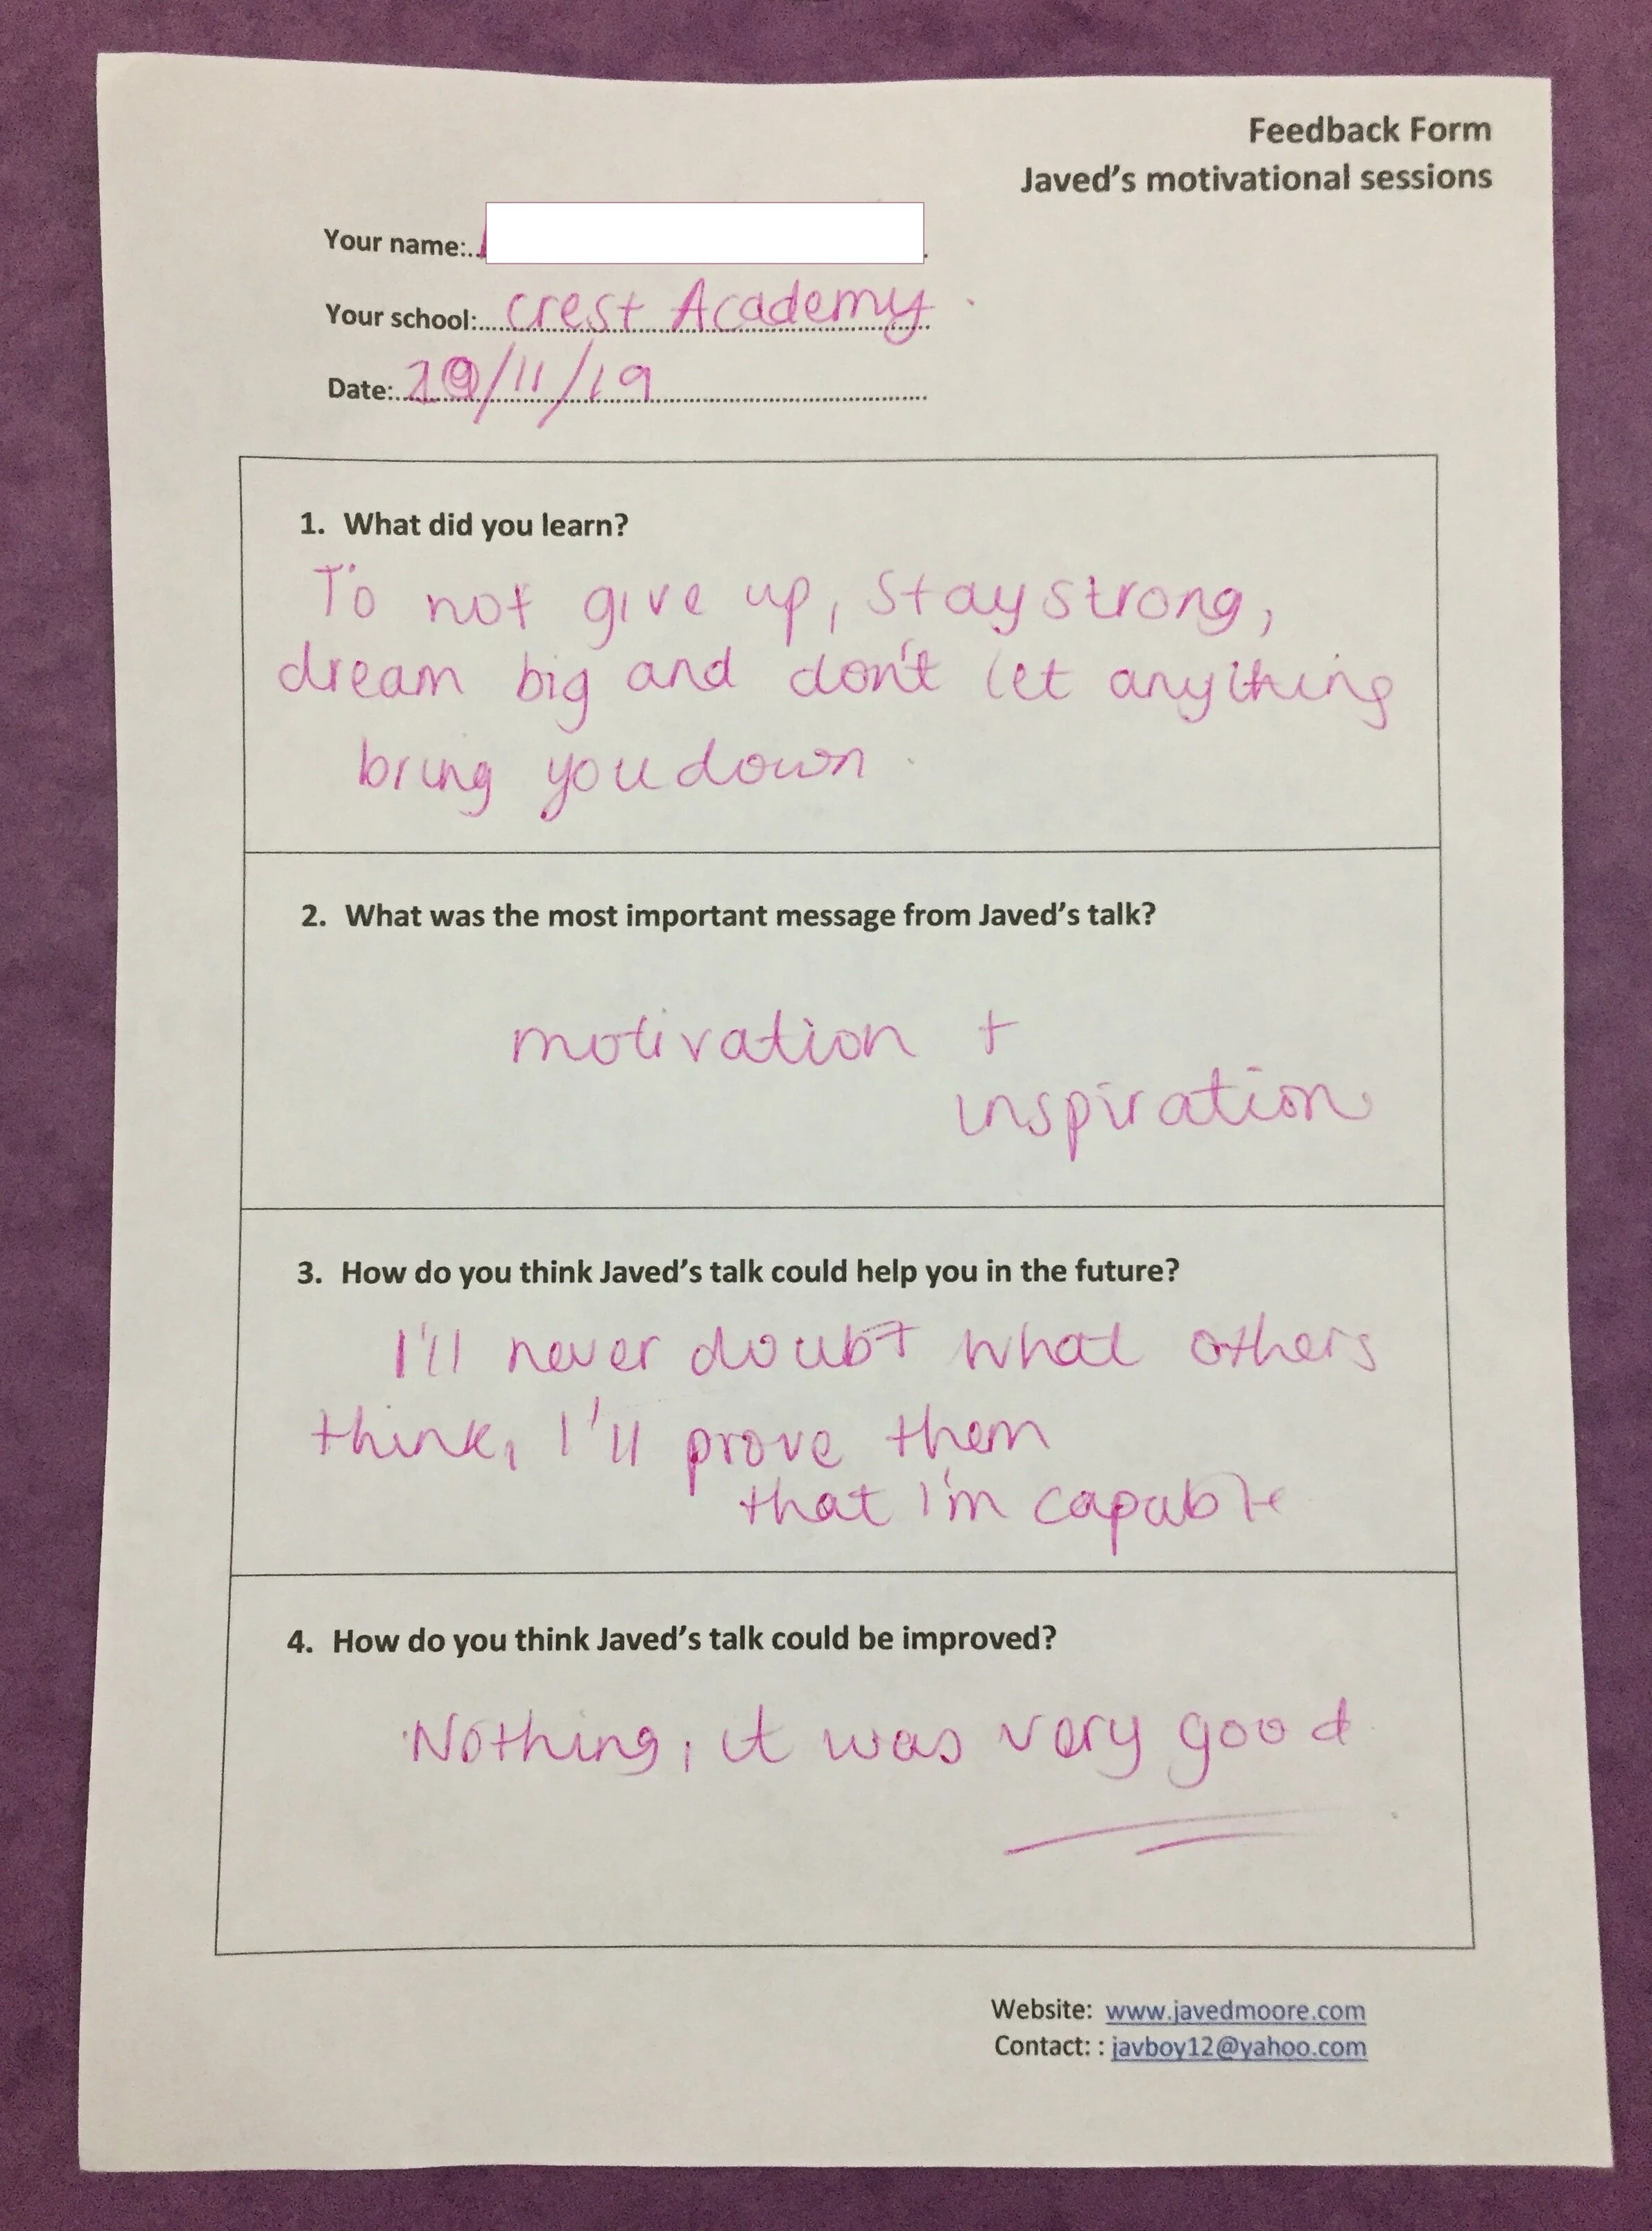 Feedback Form
Javed's motivational sessions
Your name:
Your school: Crest Academy
Date: /11/19
1. What did you learn?
To not give up, stay strong,
dream big and don't let anything
bring you down.
2. What was the most important message from Javed's talk?
motivation +
inspiration
3. How do you think Javed's talk could help you in the future?
I'll never doubt what others
think, I'll prove them
that I'm capable
4. How do you think Javed's talk could be improved?
Nothing, it was very good
Website: www.javedmoore.com
Contact: : javboy12@yahoo.com